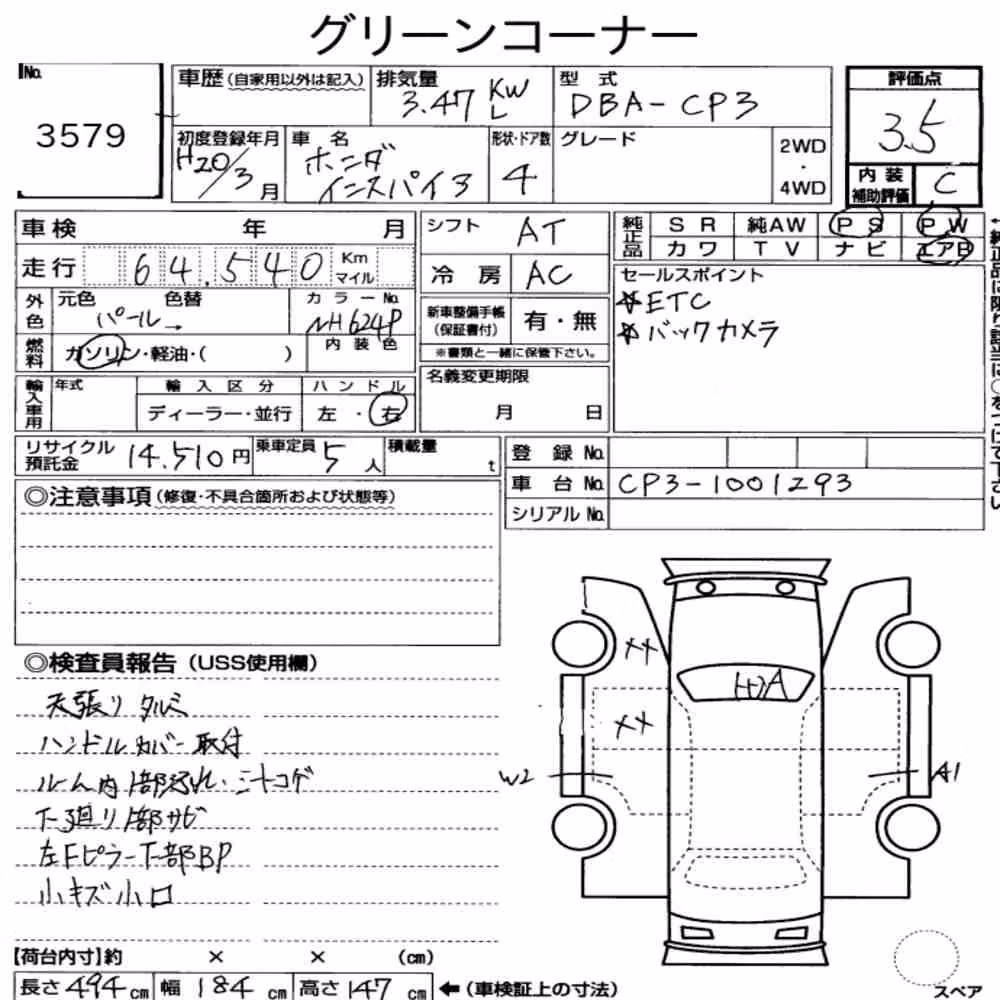 グリーンコーナー
No.
3579
車歴(自家用以外は記入)
排気量
3.47 KW L
型 式
DBA-CP3
評価点
3.5
初度登録年月
H20/3月
車 名
ホンダ
インスパイア
形状・ドア数
4
グレード
2WD
・
4WD
内装
補助評価
C
車検 年 月
シフト AT
純正品
SR 純AW PS PW
カワ TV ナビ エアB
走行 64,540 Km マイル
冷房 AC
セールスポイント
☆ETC
☆バックカメラ
外色
元色 色替
パール→
カラーNo.
NH624P
新車整備手帳
(保証書付)
有・無
※書類と一緒に保管下さい。
燃料
ガソリン・軽油・( )
内装色
輸入車用
年式
輸入区分
ディーラー・並行
ハンドル
左・右
名義変更期限
月 日
リサイクル
預託金
14.510円
乗車定員 5人
積載量 t
登録No.
車台No. CP3-1001293
シリアルNo.
◎注意事項(修復・不具合箇所および状態等)
◎検査員報告(USS使用欄)
天張りタルミ
ハンドルカバー取付
ルーム内1部汚れ・シートコゲ
下廻り1部サビ
左Fピラー下部BP
小キズ小凹
XX
XX
W2
A1
【荷台内寸】約 × × (cm)
長さ494cm 幅184cm 高さ147cm ←(車検証上の寸法)
スペア